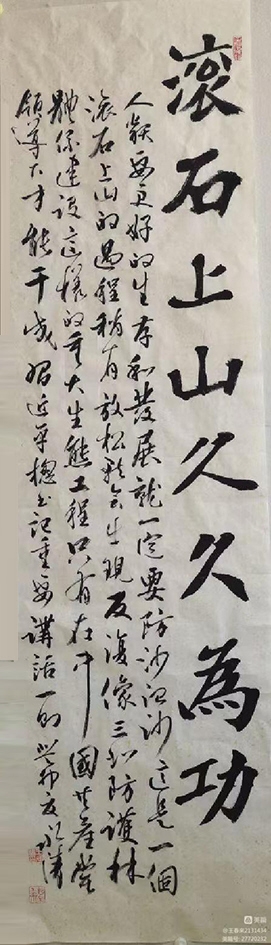 滾石上山久久為功
人類要更好的生存和發展就一定要防沙治沙這是一個
滾石上山的過程稍有放松就會出現反復像三北防護林
體係建設這樣的重大生態工程只有在中國共產党
領導下才能干成習近平總書記重要講話一則
美篇
@王春来2131434
美篇号: 27720192